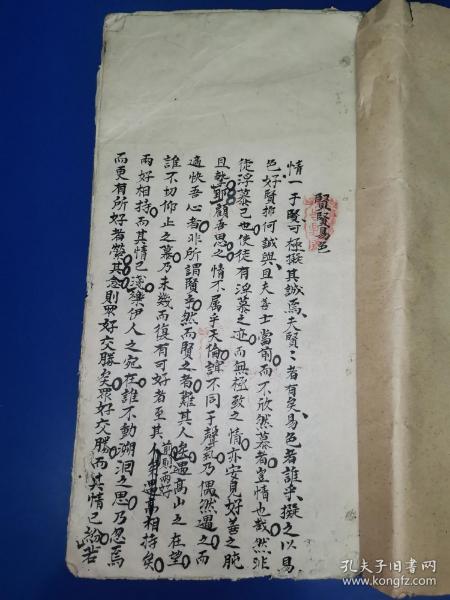 賢賢易色
情一于賢可極擬其誠焉夫賢賢者有矣易色者誰乎擬之以易
色好賢抑何誠與且夫善士當前而不欣然慕者豈情也哉然非
徒浮慕已也使徒有浮慕之迹而無極致之情亦安見好善之肫
且摯耶顧吾思之情不属乎天倫誼不同于聲氣乃偶然遇之而
適快吾心者非所謂賢乎然而賢之者難其人矣過高山之在望
誰不切仰止之慕乃未幾而復有可好者至其前則兩好相持矣
兩好相持而其情已淺伊人之宛在誰不動溯洄之思乃忽焉
而更有所好者縈其念則眾好交勝矣眾好交勝而其情已紛若
孔夫子旧书网
book.kongfz.com